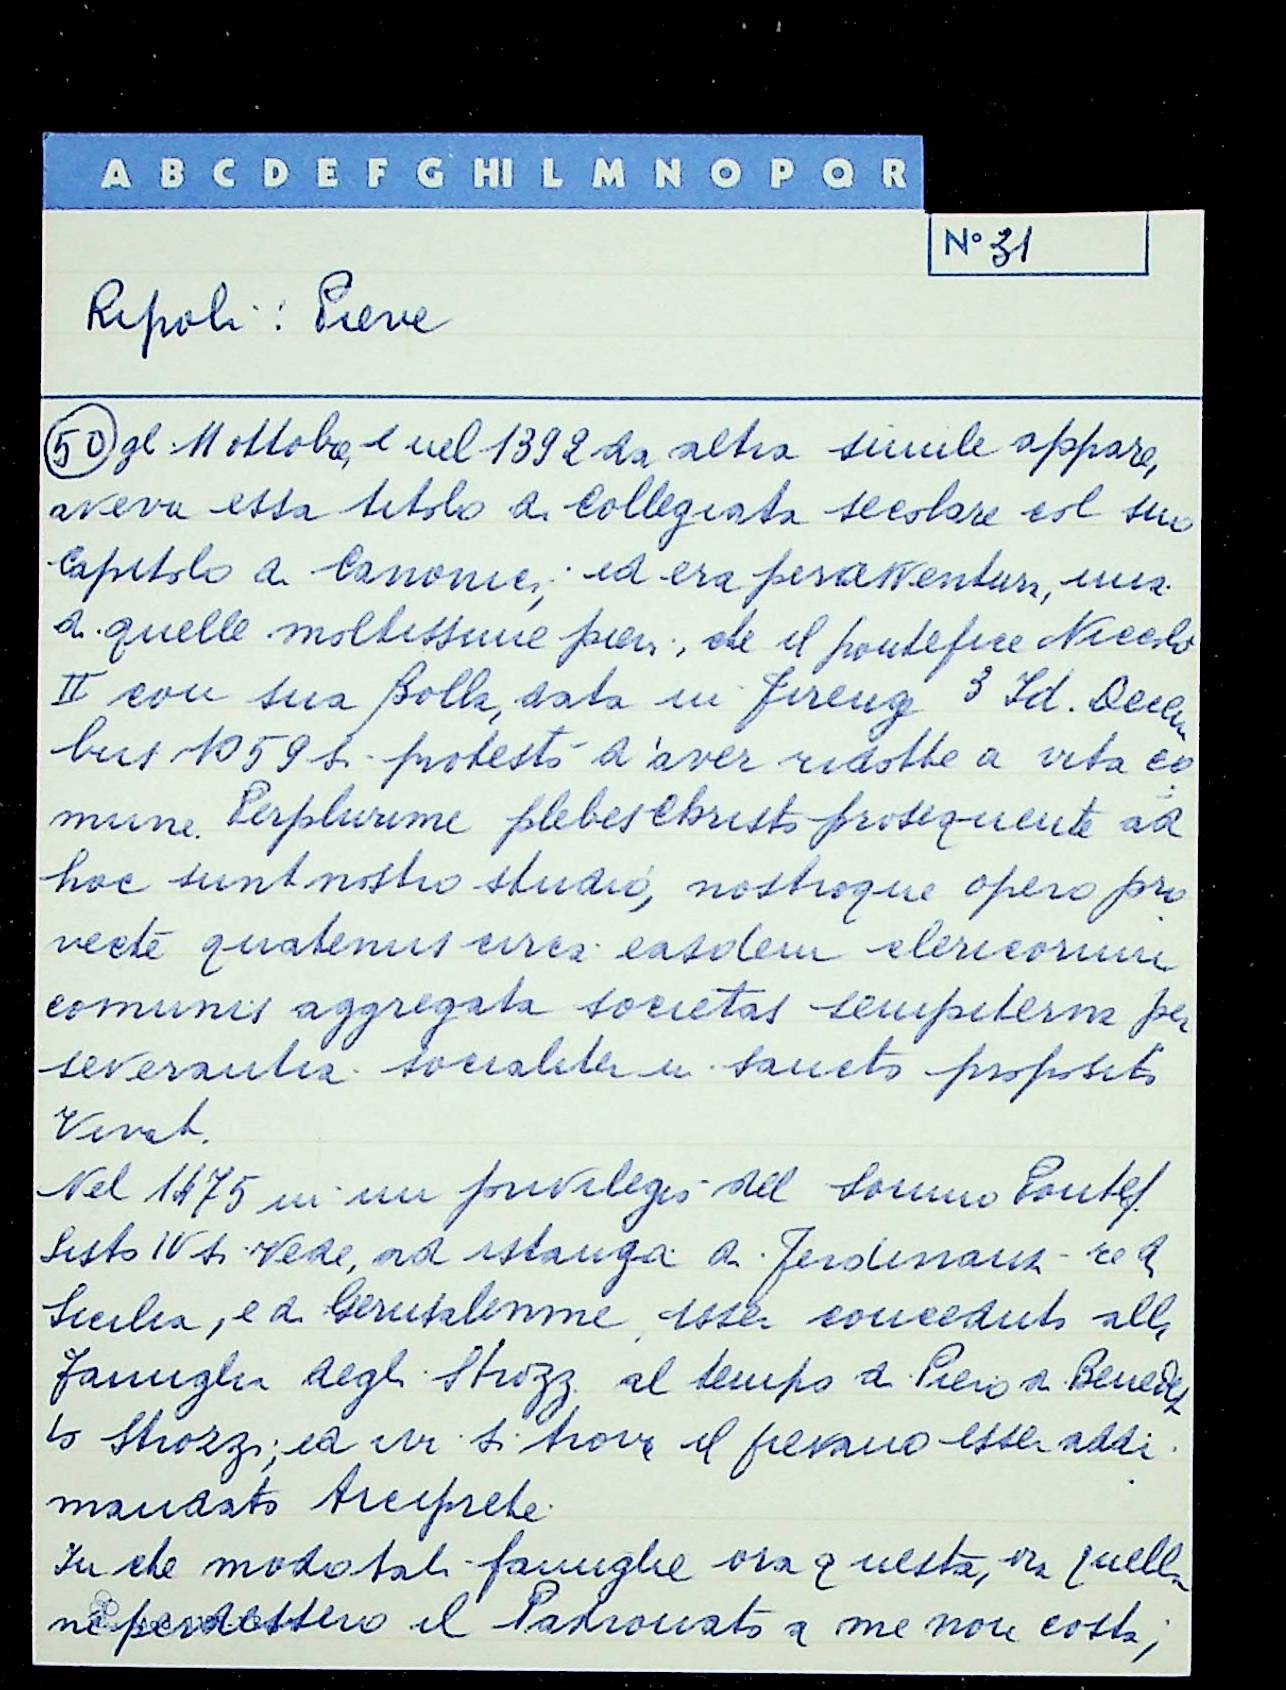 A B C D E F G HI L M N O P Q R
N° 31
Ripoli: Pieve
50 gl 11 ottobre, e nel 1392 da altra simile appare,
aveva essa titolo di Collegiata secolare col suo
Capitolo di Canonici; ed era peravventura, una
di quelle moltissime pievi, che il pontefice Niccolò
II con sua Bolla, data in Firenze 3 Id. Decem
bris 1059 si protestò d'aver ridotte a vita co
mune. Perplurime plebes Christo prosequente ad
hoc sunt nostro studio, nostroque opero pro
vecte quatenus circa easdem clericorum
comunis aggregata societas sempiterna per
severantia socialiter in sancto proposito
vivat.
Nel 1475 in un privilegio del Sommo Pontef.
Sisto IV si vede, ad istanza di Ferdinando re di
Sicilia, e di Gerusalemme, esser conceduto alla
famiglia degli Strozzi al tempo di Piero di Benedet
to Strozzi; ed ivi si trova il pievano esser addi
mandato Arciprete.
In che modo tali famiglie ora questa, ora quella
ne perdessero il Padronato a me non costa;